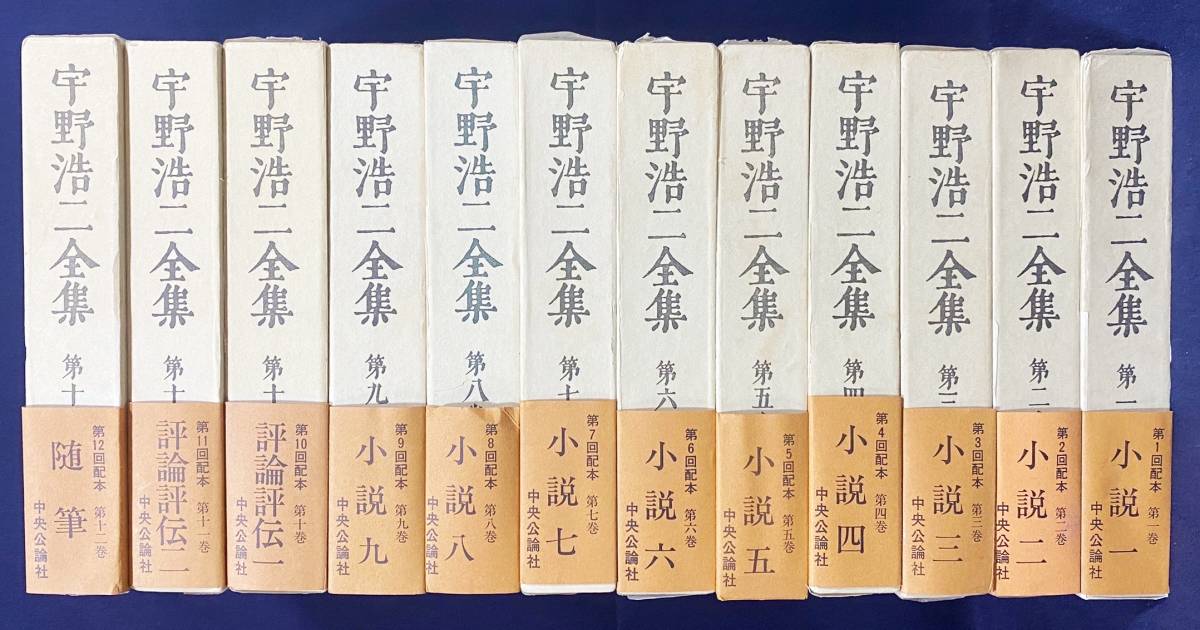 宇野浩二全集 第一
第1回配本 第一巻
小説一
中央公論社
宇野浩二全集 第二
第2回配本 第二巻
小説二
中央公論社
宇野浩二全集 第三
第3回配本 第三巻
小説三
中央公論社
宇野浩二全集 第四
第4回配本 第四巻
小説四
中央公論社
宇野浩二全集 第五
第5回配本 第五巻
小説五
中央公論社
宇野浩二全集 第六
第6回配本 第六巻
小説六
中央公論社
宇野浩二全集 第七
第7回配本 第七巻
小説七
中央公論社
宇野浩二全集 第八
第8回配本 第八巻
小説八
中央公論社
宇野浩二全集 第九
第9回配本 第九巻
小説九
中央公論社
宇野浩二全集 第十
第10回配本 第十巻
評論評伝一
中央公論社
宇野浩二全集 第十
第11回配本 第十一巻
評論評伝二
中央公論社
宇野浩二全集 第十
第12回配本 第十二巻
随筆
中央公論社